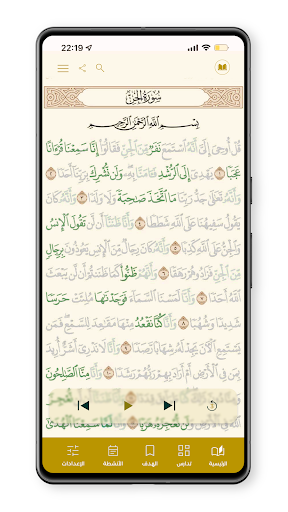 22:19
سُورَةُ الجِنِّ
بِسْمِ اللَّهِ الرَّحْمَٰنِ الرَّحِيمِ
قُلْ أُوحِيَ إِلَيَّ أَنَّهُ اسْتَمَعَ نَفَرٌ مِّنَ الْجِنِّ فَقَالُوا إِنَّا سَمِعْنَا قُرْءَانًا
عَجَبًا ١ يَهْدِي إِلَى الرُّشْدِ فَـَٔامَنَّا بِهِ وَلَن نُّشْرِكَ بِرَبِّنَا أَحَدًا ٢ وَأَنَّهُ
تَعَٰلَىٰ جَدُّ رَبِّنَا مَا اتَّخَذَ صَٰحِبَةً وَلَا وَلَدًا ٣ وَأَنَّهُ كَانَ
يَقُولُ سَفِيهُنَا عَلَى اللَّهِ شَطَطًا ٤ وَأَنَّا ظَنَنَّا أَن لَّن تَقُولَ الْإِنسُ
وَالْجِنُّ عَلَى اللَّهِ كَذِبًا ٥ وَأَنَّهُ كَانَ رِجَالٌ مِّنَ الْإِنسِ يَعُوذُونَ بِرِجَالٍ
مِّنَ الْجِنِّ فَزَادُوهُمْ رَهَقًا ٦ وَأَنَّهُمْ ظَنُّوا كَمَا ظَنَنتُمْ أَن لَّن يَبْعَثَ
اللَّهُ أَحَدًا ٧ وَأَنَّا لَمَسْنَا السَّمَآءَ فَوَجَدْنَٰهَا مُلِئَتْ حَرَسًا
شَدِيدًا وَشُهُبًا ٨ وَأَنَّا كُنَّا نَقْعُدُ مِنْهَا مَقَٰعِدَ لِلسَّمْعِ فَمَن
يَسْتَمِعِ الْـَٔانَ يَجِدْ لَهُ شِهَابًا رَّصَدًا ٩ وَأَنَّا لَا نَدْرِي أَشَرٌّ أُرِيدَ
بِمَن فِي الْأَرْضِ أَمْ أَرَادَ بِهِمْ رَبُّهُمْ رَشَدًا ١٠ وَأَنَّا مِنَّا الصَّٰلِحُونَ
الرئيسية تدارس الهدف الأنشطة الإعدادات